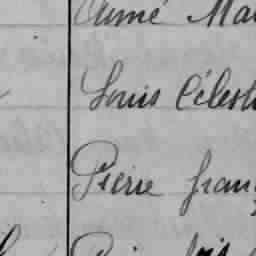 Aimé Ma
Louis Célest
Pierre fran